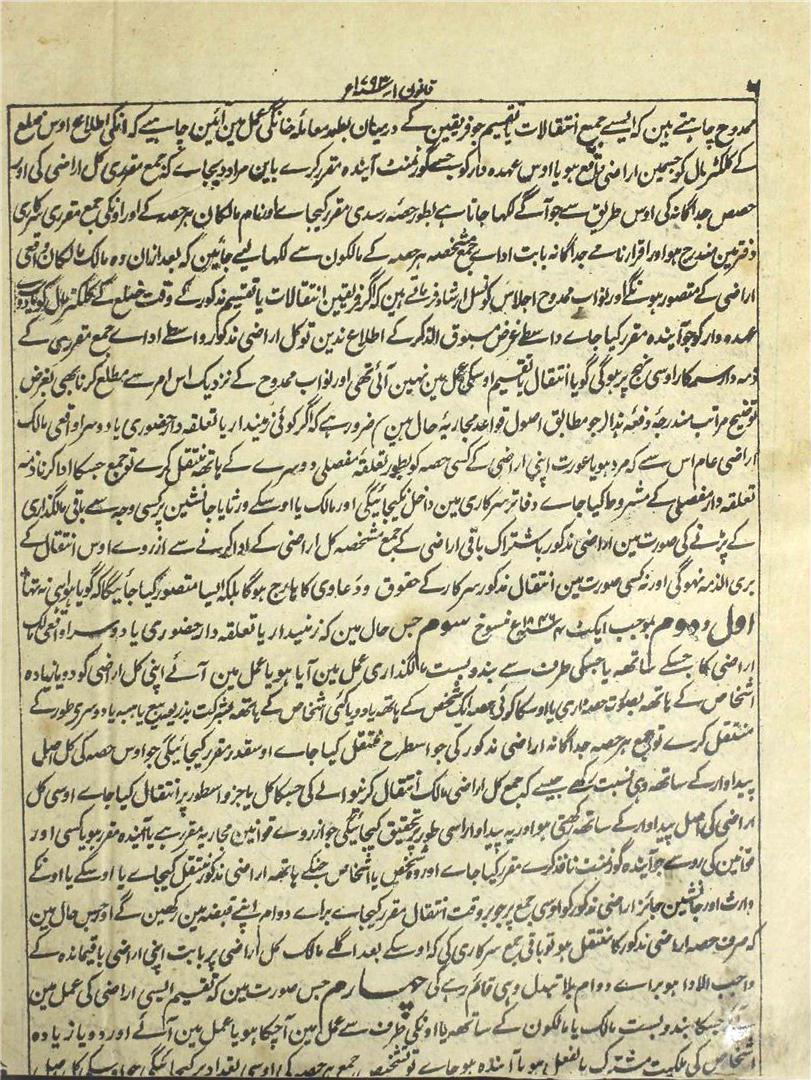 ۶
قانون ۱ سنہ ۱۷۹۳ء
ممدوح چاہتے ہین کہ ایسے جمیع انتقالات یا تقسیم جو فریقین کے درمیان بطور معاملہ خانگی عمل مین آئین چاہیے کہ انکی اطلاع اوس ضلع
کے کلکٹر مال کو جسمین اراضی واقع ہو یا اوس عہدہ دار کو جسے گورنمنٹ آیندہ مقرر کرے باین مراد دیجاے کہ جمع مقرری کل اراضی کی اور
حصص جداگانہ کی اوس طریق سے جو آگے لکہا جاتا ہے بطور حصہ رسدی مقرر کیجاے اور نام مالکان ہر حصہ کے اور اونکی جمع مقرری سرکاری
دفتر مین مندرج ہو اور اقرارنامے جداگانہ بابت اداے جمع مشخصہ ہر حصہ کے مالکون سے لکہا لیے جائین کہ بعد ازان وہ مالک مالکان واقعی
اراضی کے متصور ہونگے اور نواب ممدوح اجلاس کونسل ارشاد فرماتے ہین کہ اگر فریقین انتقالات یا تقسیم مذکور کے وقت ضلع کے کلکٹر مال کو یا دوسرے
عہدہ دار کو جو آیندہ مقرر کیا جاے واسطے غرض مسبوق الذکر کے اطلاع ندین تو کل اراضی مذکور واسطے اداے جمع مقرری کے
ذمہ دار سرکار اوسی نہج پر ہوگی گویا انتقال یا تقسیم اوسکی عمل مین نہین آئی تھی اور نواب ممدوح کے نزدیک اس امر سے مطلع کرنا بھی بغرض
توضیح مراتب مندرجہ دفعہ ہذا (جو مطابق اصول قواعد مجاریۂ حال ہین) ضرور ہے کہ اگر کوئی زمیندار یا تعلقہ دار حضوری یا دوسرا واقعی مالک
اراضی عام اس سے کہ مرد ہو یا عورت اپنی اراضی کے کسی حصہ کو بطور تعلقہ مفصلی دوسرے کے ہاتھ منتقل کرے تو جمع جسکا ادا کرنا ذمہ
تعلقہ دار مفصلی کے مشروط کیا جاے دفاتر سرکاری مین داخل نکیجائیگی اور مالک یا اوسکے ورثا یا جانشین پر کسی وجہ سے باقی مالگذاری
کے پڑنے کی صورت مین اراضی مذکور باشتراک باقی اراضی کے جمع مشخصہ کل اراضی کے ادا کرنے سے از روے اوس انتقال کے
بری الذمہ نہوگی اور نہ کسی صورت مین انتقال مذکور سرکار کے حقوق و دعاوی کا ہارج ہوگا بلکہ ایسا متصور کیا جائیگا کہ گویا ہوا ہی نہ تھا
اول و دوم بموجب ایکٹ سنہ ۱۸۴۶ع نسوخ سوم جس حال مین کہ زمیندار یا تعلقہ دار حضوری یا دوسرا واقعی مالک
اراضی کا جسکے ساتھ یا جسکی طرف سے بندوبست مالگذاری عمل مین آیا ہو یا عمل مین آئے اپنی کل اراضی کو دو یا زیادہ
اشخاص کے ہاتھ بصورت حصہ داری یا اوسکا کوئی حصہ ایک شخص کے ہاتھ یا دو یا کئی اشخاص کے ہاتھ بشرکت بذریعہ بیع یا ہبہ یا دوسری طور کے
منتقل کرے تو جمع ہر حصہ جداگانہ اراضی مذکور کی جو اسطرح منتقل کیا جاے اوسقدر مقرر کیجائیگی جو اوس حصہ کی کل اصل
پیداوار کے ساتھ وہی نسبت رکھے جیسے کہ جمع کل اراضی مالک انتقال کرنیوالے کی جسکا کل یا جزو اسطور پر انتقال کیا جاے اوسی کل
اراضی کی اصل پیداوار کے ساتھ رکھتی ہو اور یہ پیداوار اسی طور پر تحقیق کیجائیگی جو ازروے قوانین مجاریہ مقرر ہے یا آیندہ مقرر ہو یا کسی اور
قوانین کی روسے جو آیندہ گورنمنٹ نافذ کرے مقرر کیا جاے اور وہ شخص یا اشخاص جنکے ہاتھ اراضی مذکور منتقل کیجاے یا اوسکے یا اونکے
وارث اور جانشین جائز اراضی مذکور کو اوسی جمع پر جو بروقت انتقال مقرر کیجاے براے دوام اپنے قبضہ مین رکھین گے اور جس حال مین
کہ صرف حصہ اراضی مذکور کا منتقل ہو تو باقی جمع سرکاری کی کہ اوسکے بعد اگلے مالک کل اراضی پر بابت اپنی اراضی باقیماندہ کے
واجب الادا ہو براے دوام بلا تبدل وہی قائم رہے گی چہارم جس صورت مین کہ تقسیم ایسی اراضی کی عمل مین
آئے جسکا بندوبست مالک یا مالکون کے ساتھ یا اونکی طرف سے عمل مین آچکا ہو یا عمل مین آئے اور دو یا زیادہ
اشخاص کی ملکیت مشترک بالفعل ہو یا آیندہ ہو جاے تو تشخیص جمع ہر حصہ کی اوسی تعداد پر کیجائیگی جو اوسکی کل اصل